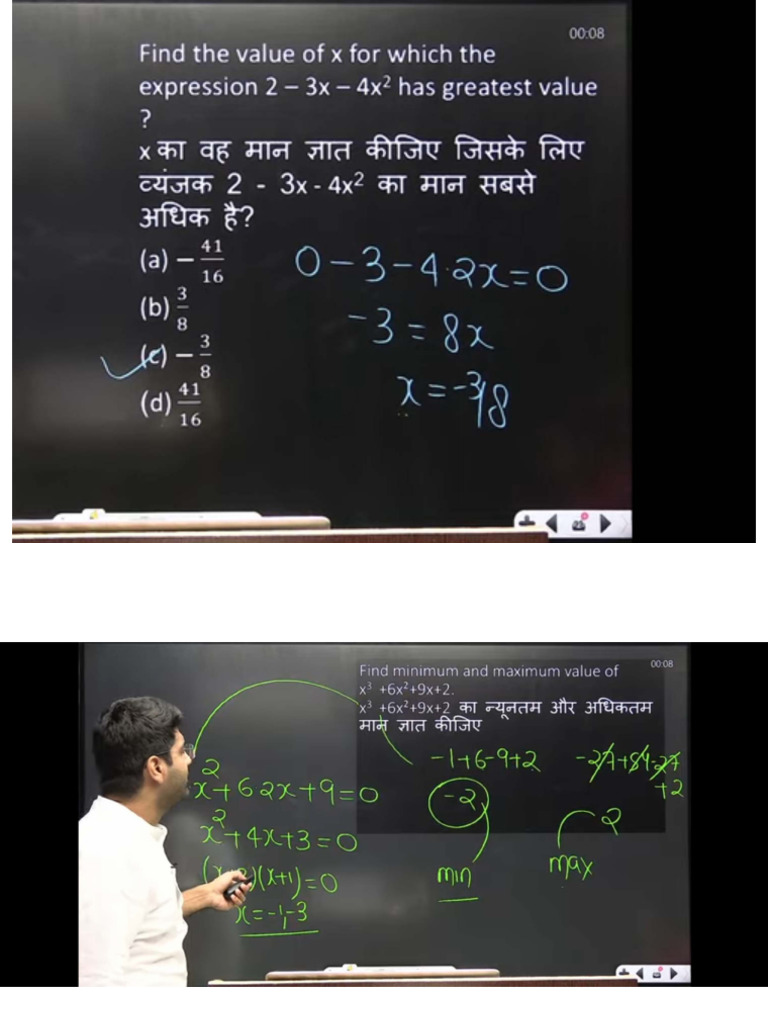 00:08
Find the value of x for which the
expression 2 – 3x – 4x² has greatest value
?
x का वह मान ज्ञात कीजिए जिसके लिए
व्यंजक 2 - 3x - 4x² का मान सबसे
अधिक है?
(a) – 41/16
(b) 3/8
(c) – 3/8
(d) 41/16
0 – 3 – 4·2x = 0
-3 = 8x
x = -3/8
00:08
Find minimum and maximum value of
x³ +6x²+9x+2.
x³ +6x²+9x+2 का न्यूनतम और अधिकतम
मान ज्ञात कीजिए
x² + 6 2x + 9 = 0
x² + 4x + 3 = 0
(x+1) = 0
x = -1, -3
-1+6-9+2
-2
min
-27+54-27
+2
2
max